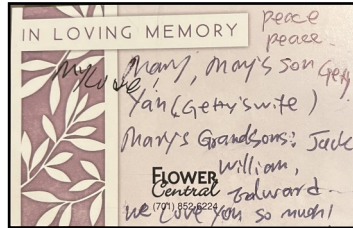 peace
IN LOVING MEMORY
peace.
my Love Mary, Mary's son Getty
Yan (Getty's wife)
Mary's Grandsons: Jack
William,
FLOWER
Central Edward.
(701) 852-6224
We Love You so much!